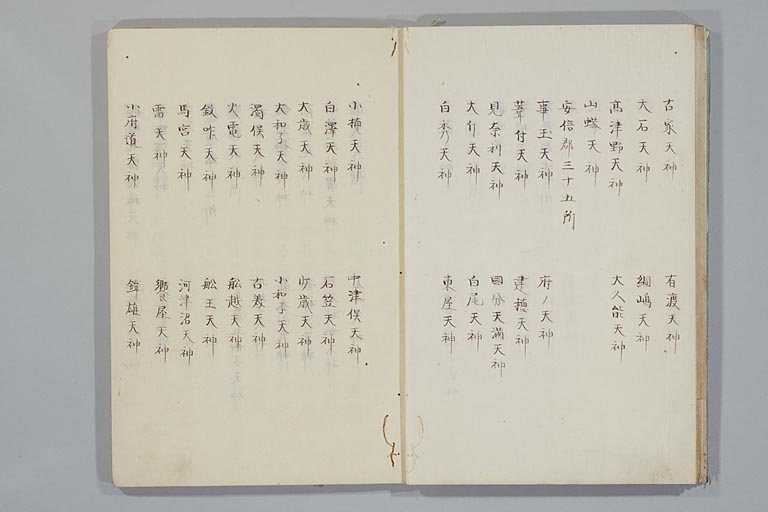 古家天神　有渡天神
大石天神　綱嶋天神
高津野天神　大久能天神
山𡽶天神
安倍郡三十五所
事玉天神　府ノ天神
葦付天神　建穂天神
見奈利天神　国分天満天神
大行天神　白尾天神
白秀天神　東屋天神
小楠天神　中津俣天神
白澤天神　石笠天神
大歳天神　少歳天神
大和子天神　小和子天神
濁俣天神　古嶽天神
火電天神　舩越天神
鼓咋天神　舩玉天神
馬宮天神　河津沼天神
雷天神　饗屋天神
小府道天神　鋒雄天神